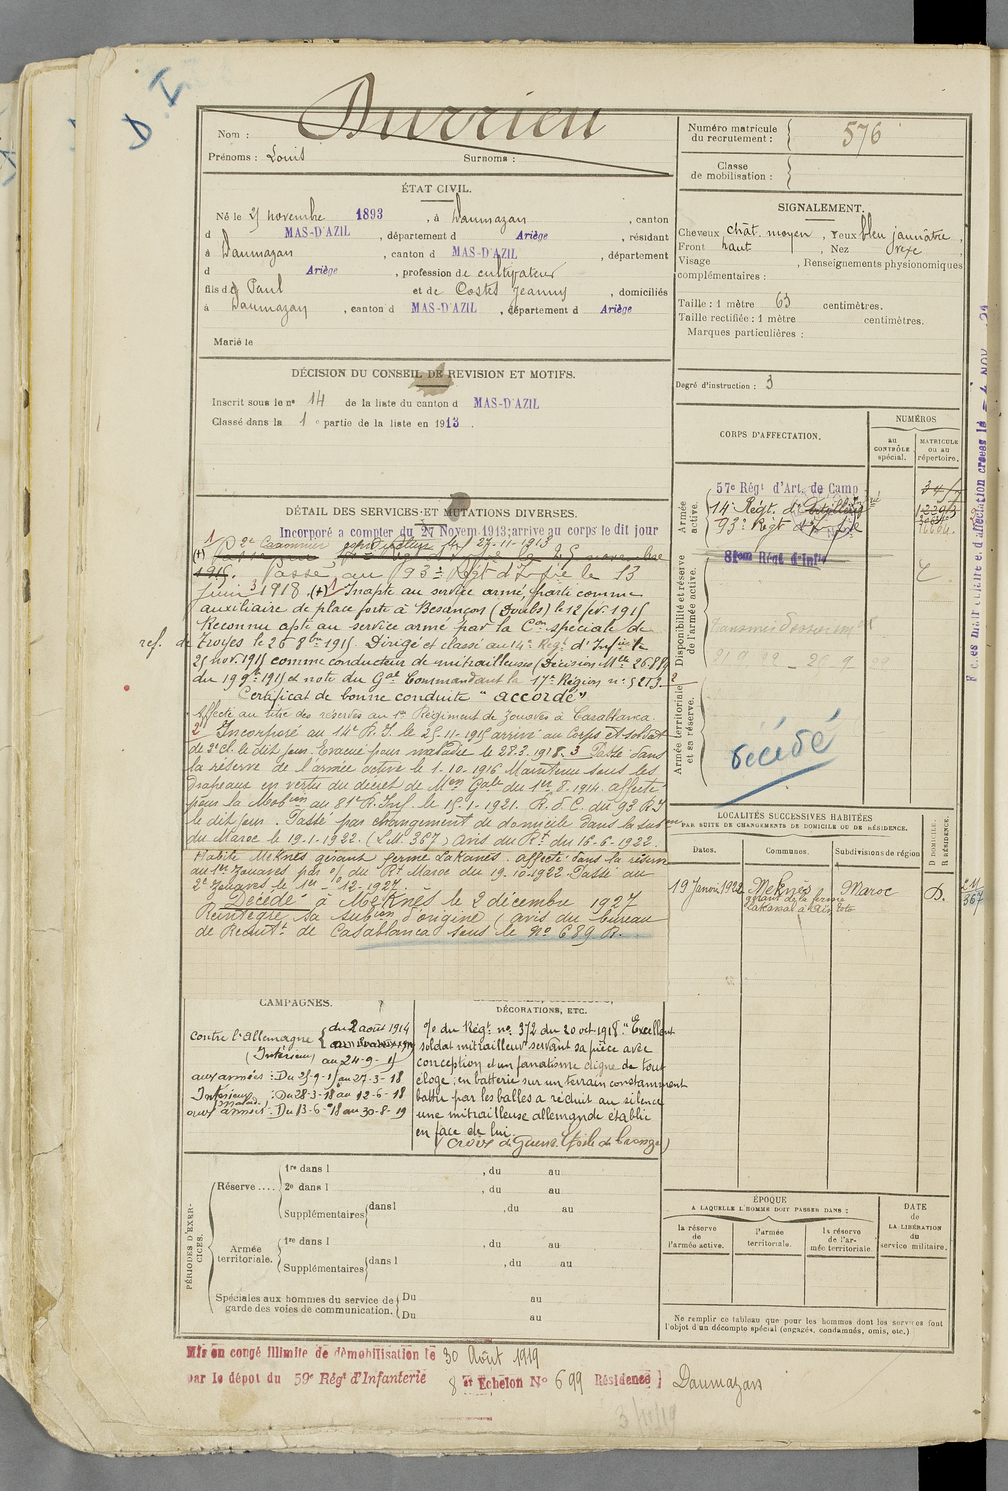 D I
Nom : Durrieu
Prénoms : Louis Surnoms :
Numéro matricule du recrutement : 576
Classe de mobilisation :
ÉTAT CIVIL.
Né le novembre 1893, à Daumazan, canton
d MAS-D'AZIL, département d Ariège, résidant
à Daumazan, canton d MAS-D'AZIL, département
d Ariège, profession de cultivateur
fils de Paul et de Costes Jeanny, domiciliés
à Daumazan, canton d MAS-D'AZIL, département d Ariège
Marié le
SIGNALEMENT.
Cheveux chât. moyen, Yeux bleu jaunâtre,
Front haut, Nez
Visage , Renseignements physionomiques
complémentaires :
Taille : 1 mètre 63 centimètres.
Taille rectifiée : 1 mètre centimètres.
Marques particulières :
Degré d'instruction : 3
DÉCISION DU CONSEIL DE REVISION ET MOTIFS.
Inscrit sous le n° 14 de la liste du canton d MAS-D'AZIL
Classé dans la 1e partie de la liste en 1913.
CORPS D'AFFECTATION.
NUMÉROS
au CONTRÔLE spécial.
MATRICULE ou au répertoire.
Armée active.
57e Régt d'Art. de Camp
14e Régt. d'
93e Régt d'Infie
Disponibilité et réserve de l'armée active.
81eme Régt d'Infie
Armée territoriale et sa réserve.
décédé
DÉTAIL DES SERVICES ET MUTATIONS DIVERSES.
Incorporé a compter du 27 Novem. 1913; arrive au corps le dit jour
1915. Passé au 93e Régt d'Infie le 13
juin 1918. (+) Inapte au service armé, porté comme
auxiliaire de place forte à Besançon (Doubs) le 12 fév. 1915
Reconnu apte au service armé par la Con spéciale de
ref. de Troyes le 26 8bre 1915. Dirigé et classé au 14e Régt d'Infie le
25 nov. 1915 comme conducteur de mitrailleuses (Décision Mlle 26889
du 19 9bre 1915 et note du Gal Commandant la 17e Région n° 5213
Certificat de bonne conduite "accordé"
Affecté au titre des réserves au 1er Régiment de Zouaves à Casablanca.
2 Incorporé au 14e R.I. le 25-11-1915 arrivé au Corps et soldat
de 2e cl. le dit jour. Evacué pour maladie le 28.3.1918. 3 Passé dans
la réserve de l'armée active le 1-10-1916 Maintenu sous les
drapeaux en vertu du décret de Mon Gale du 1er 8.1914. affecté
pour la Mobion au 81e R. Inf. le 15-1-1921. R.d.C. du 93 R.I
le dit jour. Passé par changement de domicile dans la subon
du Maroc le 19.1.1922. (L.M. 367) avis du Rt du 16-6-1922.
Habite Meknès gérant ferme Lakanal. affecté dans la réserve
au 1er Zouaves par o/ du Rt Maroc du 19.10.1922 Passé au
2e Zouaves le 1er-12-1927.
Décédé à Meknès le 2 décembre 1927
Réintègre sa subon d'origine (avis du bureau
de Recrutt de Casablanca sous le n° 689 R.
LOCALITÉS SUCCESSIVES HABITÉES
PAR SUITE DE CHANGEMENTS DE DOMICILE OU DE RÉSIDENCE.
Dates. Communes. Subdivisions de région
D DOMICILE. R RÉSIDENCE.
19 Janvier 1922 Meknès Maroc D. L.M 367
gérant de la ferme
Lakanal à Aïn
CAMPAGNES.
contre l'Allemagne du 2 août 1914
(Intérieur) au 24-9-15
aux armées : Du 25-9-15 au 27-3-18
Intérieur : Du 28-3-18 au 12-6-18
aux armées : Du 13-6-18 au 30-8-19
DÉCORATIONS, ETC.
o/ du Régt n° 372 du 20 oct 1918. "Excellent
soldat mitrailleur servant sa pièce avec
conception et un fanatisme digne de tout
éloge ; en batterie sur un terrain constamment
battu par les balles a réduit au silence
une mitrailleuse allemande établie
en face de lui.
Croix de Guerre (Etoile de bronze)
PÉRIODES D'EXERCICES.
Réserve.... 1re dans l , du au
2e dans l , du au
Supplémentaires dans l , du au
Armée territoriale. 1re dans l , du au
Supplémentaires dans l , du au
Spéciales aux hommes du service de garde des voies de communication. Du au
Du au
ÉPOQUE
A LAQUELLE L'HOMME DOIT PASSER DANS :
la réserve de l'armée active.
l'armée territoriale.
la réserve de l'armée territoriale
DATE de LA LIBÉRATION du service militaire.
Ne remplir ce tableau que pour les hommes dont les services font
l'objet d'un décompte spécial (engagés, condamnés, omis, etc.)
Mis en congé illimité de démobilisation le 30 Août 1919
par le dépôt du 59e Régt d'Infanterie 8 Echelon N° 699 Résidence Daumazan